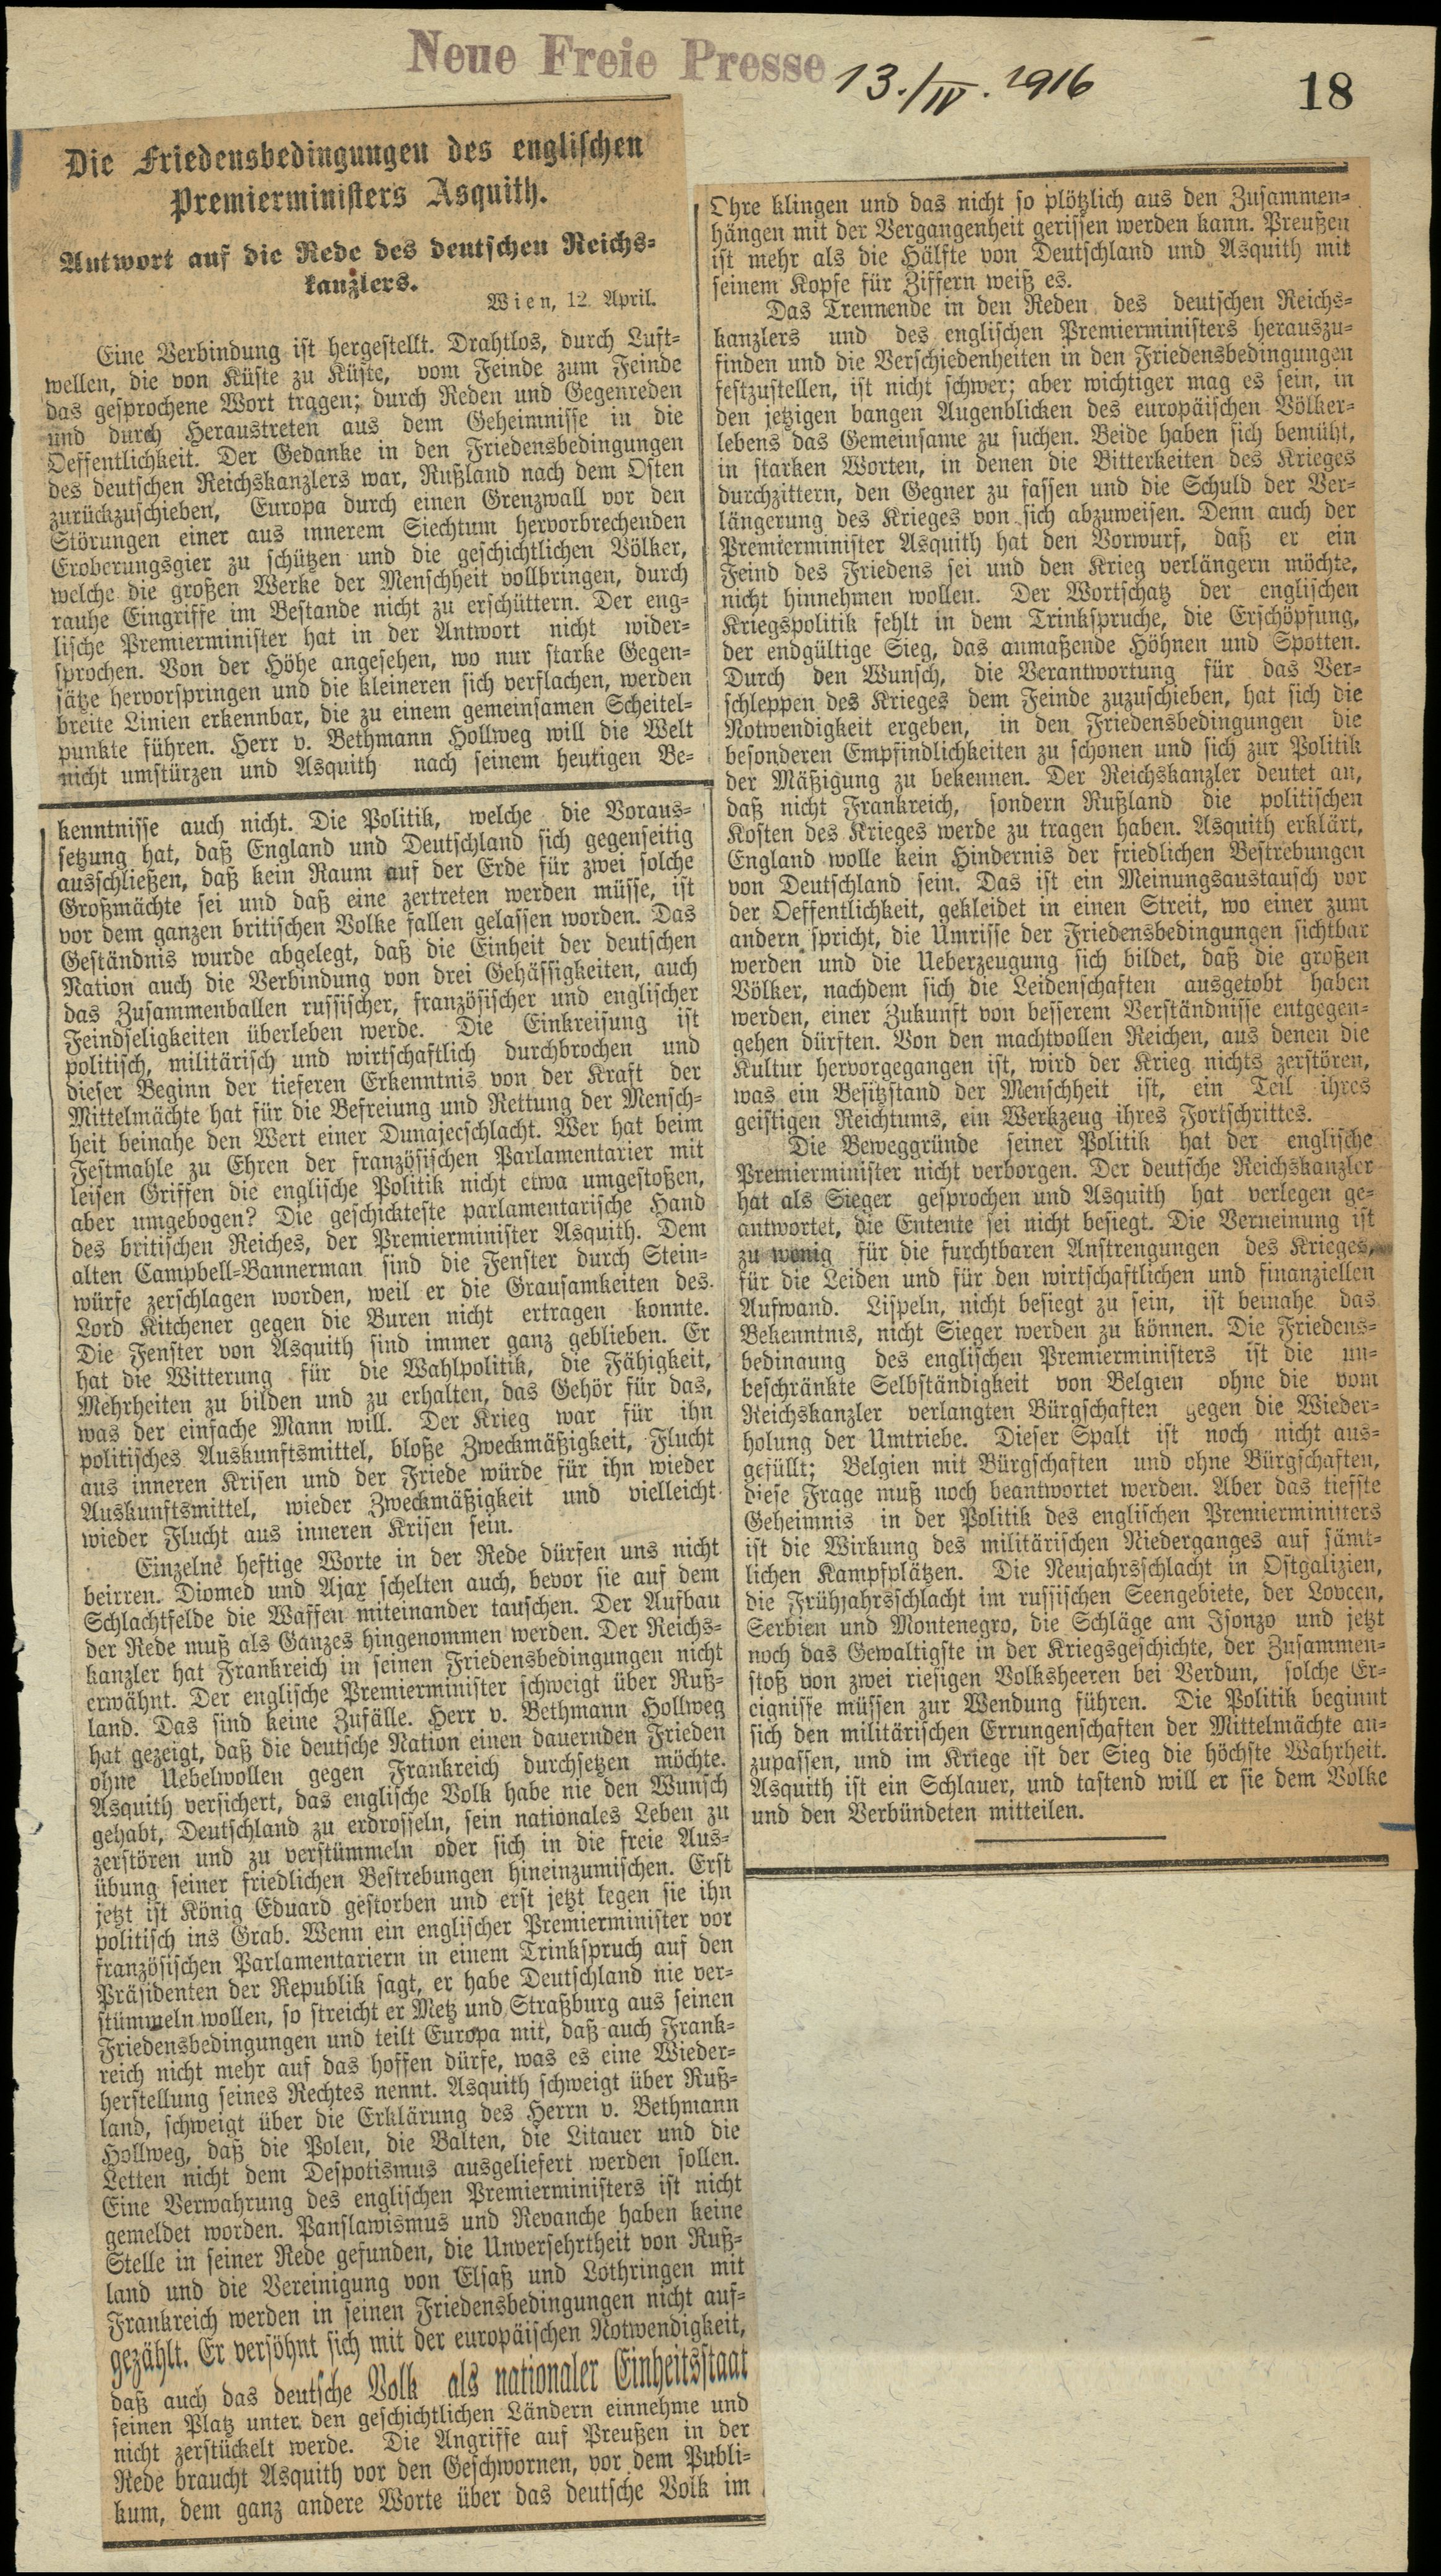 Neue Freie Presse
13./IV. 1916
18
Die Friedensbedingungen des englischen
Premierministers Asquith.
Antwort auf die Rede des deutschen Reichs-
kanzlers.
Wien, 12. April.
Eine Verbindung ist hergestellt. Drahtlos, durch Luft-
wellen, die von Küste zu Küste, vom Feinde zum Feinde
das gesprochene Wort tragen; durch Reden und Gegenreden
und durch Heraustreten aus dem Geheimnisse in die
Oeffentlichkeit. Der Gedanke in den Friedensbedingungen
des deutschen Reichskanzlers war, Rußland nach dem Osten
zurückzuschieben, Europa durch einen Grenzwall vor den
Störungen einer aus innerem Siechtum hervorbrechenden
Eroberungsgier zu schützen und die geschichtlichen Völker,
welche die großen Werke der Menschheit vollbringen, durch
rauhe Eingriffe im Bestande nicht zu erschüttern. Der eng-
lische Premierminister hat in der Antwort nicht wider-
sprochen. Von der Höhe angesehen, wo nur starke Gegen-
sätze hervorspringen und die kleineren sich verflachen, werden
breite Linien erkennbar, die zu einem gemeinsamen Scheitel-
punkte führen. Herr v. Bethmann Hollweg will die Welt
nicht umstürzen und Asquith nach seinem heutigen Be-
kenntnisse auch nicht. Die Politik, welche die Voraus-
setzung hat, daß England und Deutschland sich gegenseitig
ausschließen, daß kein Raum auf der Erde für zwei solche
Großmächte sei und daß eine zertreten werden müsse, ist
vor dem ganzen britischen Volke fallen gelassen worden. Das
Geständnis wurde abgelegt, daß die Einheit der deutschen
Nation auch die Verbindung von drei Gehässigkeiten, auch
das Zusammenballen russischer, französischer und englischer
Feindseligkeiten überleben werde. Die Einkreisung ist
politisch, militärisch und wirtschaftlich durchbrochen und
dieser Beginn der tieferen Erkenntnis von der Kraft der
Mittelmächte hat für die Befreiung und Rettung der Mensch-
heit beinahe den Wert einer Dunajecschlacht. Wer hat beim
Festmahle zu Ehren der französischen Parlamentarier mit
leisen Griffen die englische Politik nicht etwa umgestoßen,
aber umgebogen? Die geschickteste parlamentarische Hand
des britischen Reiches, der Premierminister Asquith. Dem
alten Campbell-Bannerman sind die Fenster durch Stein-
würfe zerschlagen worden, weil er die Grausamkeiten des
Lord Kitchener gegen die Buren nicht ertragen konnte.
Die Fenster von Asquith sind immer ganz geblieben. Er
hat die Witterung für die Wahlpolitik, die Fähigkeit,
Mehrheiten zu bilden und zu erhalten, das Gehör für das,
was der einfache Mann will. Der Krieg war für ihn
politisches Auskunftsmittel, bloße Zweckmäßigkeit, Flucht
aus inneren Krisen und der Friede würde für ihn wieder
Auskunftsmittel, wieder Zweckmäßigkeit und vielleicht
wieder Flucht aus inneren Krisen sein.
Einzelne heftige Worte in der Rede dürfen uns nicht
beirren. Diomed und Ajax schelten auch, bevor sie auf dem
Schlachtfelde die Waffen miteinander tauschen. Der Aufbau
der Rede muß als Ganzes hingenommen werden. Der Reichs-
kanzler hat Frankreich in seinen Friedensbedingungen nicht
erwähnt. Der englische Premierminister schweigt über Ruß-
land. Das sind keine Zufälle. Herr v. Bethmann Hollweg
hat gezeigt, daß die deutsche Nation einen dauernden Frieden
ohne Uebelwollen gegen Frankreich durchsetzen möchte.
Asquith versichert, das englische Volk habe nie den Wunsch
gehabt, Deutschland zu erdrosseln, sein nationales Leben zu
zerstören und zu verstümmeln oder sich in die freie Aus-
übung seiner friedlichen Bestrebungen hineinzumischen. Erst
jetzt ist König Eduard gestorben und erst jetzt legen sie ihn
politisch ins Grab. Wenn ein englischer Premierminister vor
französischen Parlamentariern in einem Trinkspruch auf den
Präsidenten der Republik sagt, er habe Deutschland nie ver-
stümmeln wollen, so streicht er Metz und Straßburg aus seinen
Friedensbedingungen und teilt Europa mit, daß auch Frank-
reich nicht mehr auf das hoffen dürfe, was es eine Wieder-
herstellung seines Rechtes nennt. Asquith schweigt über Ruß-
land, schweigt über die Erklärung des Herrn v. Bethmann
Hollweg, daß die Polen, die Balten, die Litauer und die
Letten nicht dem Despotismus ausgeliefert werden sollen.
Eine Verwahrung des englischen Premierministers ist nicht
gemeldet worden. Panslawismus und Revanche haben keine
Stelle in seiner Rede gefunden, die Unversehrtheit von Ruß-
land und die Vereinigung von Elsaß und Lothringen mit
Frankreich werden in seinen Friedensbedingungen nicht auf-
gezählt. Er versöhnt sich mit der europäischen Notwendigkeit,
daß auch das deutsche Volk als nationaler Einheitsstaat
seinen Platz unter den geschichtlichen Ländern einnehme und
nicht zerstückelt werde. Die Angriffe auf Preußen in der
Rede braucht Asquith vor den Geschwornen, vor dem Publi-
kum, dem ganz andere Worte über das deutsche Volk im
Ohre klingen und das nicht so plötzlich aus den Zusammen-
hängen mit der Vergangenheit gerissen werden kann. Preußen
ist mehr als die Hälfte von Deutschland und Asquith mit
seinem Kopfe für Ziffern weiß es.
Das Trennende in den Reden des deutschen Reichs-
kanzlers und des englischen Premierministers herauszu-
finden und die Verschiedenheiten in den Friedensbedingungen
festzustellen, ist nicht schwer; aber wichtiger mag es sein, in
den jetzigen bangen Augenblicken des europäischen Völker-
lebens das Gemeinsame zu suchen. Beide haben sich bemüht,
in starken Worten, in denen die Bitterkeiten des Krieges
durchzittern, den Gegner zu fassen und die Schuld der Ver-
längerung des Krieges von sich abzuweisen. Denn auch der
Premierminister Asquith hat den Vorwurf, daß er ein
Feind des Friedens sei und den Krieg verlängern möchte,
nicht hinnehmen wollen. Der Wortschatz der englischen
Kriegspolitik fehlt in dem Trinkspruche, die Erschöpfung,
der endgültige Sieg, das anmaßende Höhnen und Spotten.
Durch den Wunsch, die Verantwortung für das Ver-
schleppen des Krieges dem Feinde zuzuschieben, hat sich die
Notwendigkeit ergeben, in den Friedensbedingungen die
besonderen Empfindlichkeiten zu schonen und sich zur Politik
der Mäßigung zu bekennen. Der Reichskanzler deutet an,
daß nicht Frankreich, sondern Rußland die politischen
Kosten des Krieges werde zu tragen haben. Asquith erklärt,
England wolle kein Hindernis der friedlichen Bestrebungen
von Deutschland sein. Das ist ein Meinungsaustausch vor
der Oeffentlichkeit, gekleidet in einen Streit, wo einer zum
andern spricht, die Umrisse der Friedensbedingungen sichtbar
werden und die Ueberzeugung sich bildet, daß die großen
Völker, nachdem sich die Leidenschaften ausgetobt haben
werden, einer Zukunft von besserem Verständnisse entgegen-
gehen dürften. Von den machtvollen Reichen, aus denen die
Kultur hervorgegangen ist, wird der Krieg nichts zerstören,
was ein Besitzstand der Menschheit ist, ein Teil ihres
geistigen Reichtums, ein Werkzeug ihres Fortschrittes.
Die Beweggründe seiner Politik hat der englische
Premierminister nicht verborgen. Der deutsche Reichskanzler
hat als Sieger gesprochen und Asquith hat verlegen ge-
antwortet, die Entente sei nicht besiegt. Die Verneinung ist
zu wenig für die furchtbaren Anstrengungen des Krieges,
für die Leiden und für den wirtschaftlichen und finanziellen
Aufwand. Lispeln, nicht besiegt zu sein, ist beinahe das
Bekenntnis, nicht Sieger werden zu können. Die Friedens-
bedingung des englischen Premierministers ist die un-
beschränkte Selbständigkeit von Belgien ohne die vom
Reichskanzler verlangten Bürgschaften gegen die Wieder-
holung der Umtriebe. Dieser Spalt ist noch nicht aus-
gefüllt; Belgien mit Bürgschaften und ohne Bürgschaften,
diese Frage muß noch beantwortet werden. Aber das tiefste
Geheimnis in der Politik des englischen Premierministers
ist die Wirkung des militärischen Niederganges auf sämt-
lichen Kampfplätzen. Die Neujahrsschlacht in Ostgalizien,
die Frühjahrsschlacht im russischen Seengebiete, der Lovcen,
Serbien und Montenegro, die Schläge am Isonzo und jetzt
noch das Gewaltigste in der Kriegsgeschichte, der Zusammen-
stoß von zwei riesigen Volksheeren bei Verdun, solche Er-
eignisse müssen zur Wendung führen. Die Politik beginnt
sich den militärischen Errungenschaften der Mittelmächte an-
zupassen, und im Kriege ist der Sieg die höchste Wahrheit.
Asquith ist ein Schlauer, und tastend will er sie dem Volke
und den Verbündeten mitteilen.